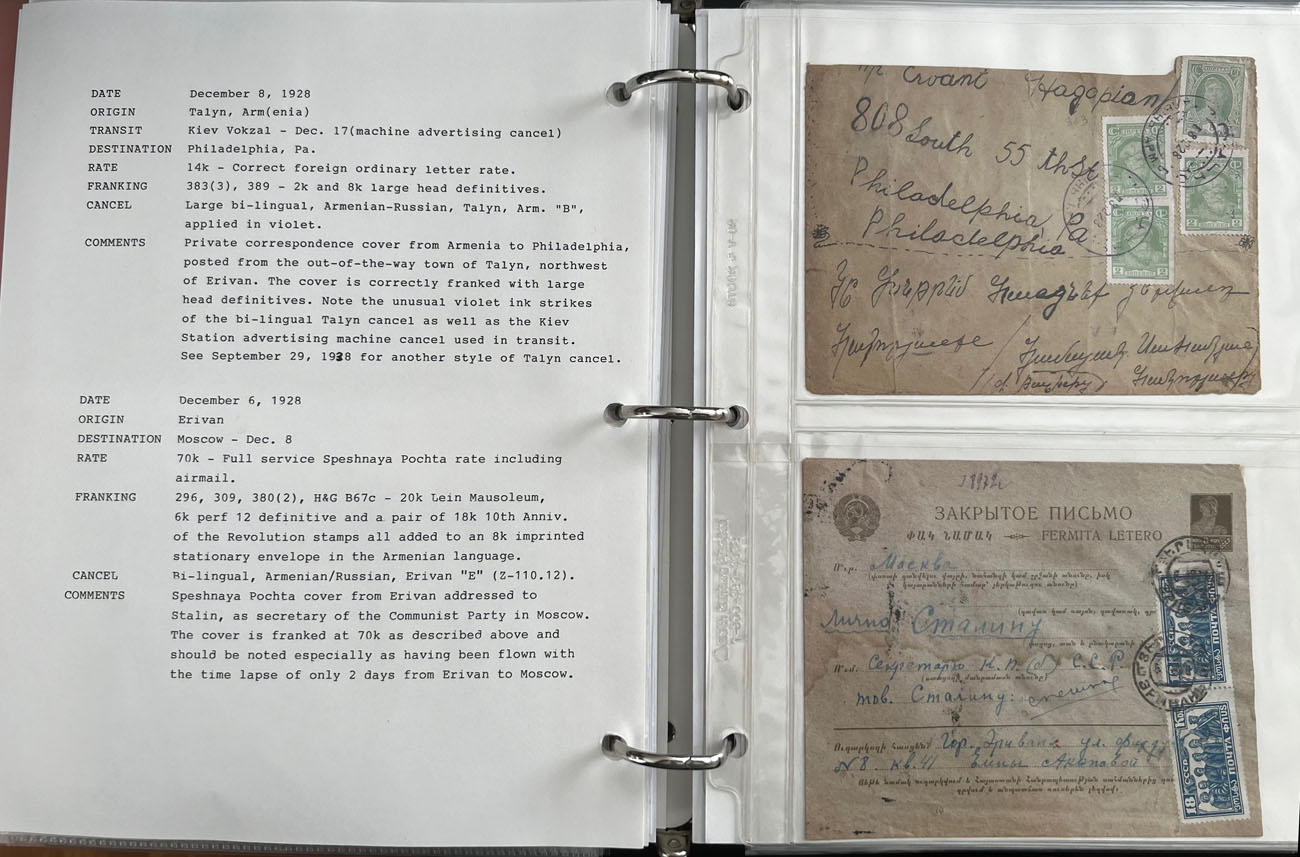 DATE December 8, 1928
ORIGIN Talyn, Arm(enia)
TRANSIT Kiev Vokzal - Dec. 17(machine advertising cancel)
DESTINATION Philadelphia, Pa.
RATE 14k - Correct foreign ordinary letter rate.
FRANKING 383(3), 389 - 2k and 8k large head definitives.
CANCEL Large bi-lingual, Armenian-Russian, Talyn, Arm. "B",
applied in violet.
COMMENTS Private correspondence cover from Armenia to Philadelphia,
posted from the out-of-the-way town of Talyn, northwest
of Erivan. The cover is correctly franked with large
head definitives. Note the unusual violet ink strikes
of the bi-lingual Talyn cancel as well as the Kiev
Station advertising machine cancel used in transit.
See September 29, 1938 for another style of Talyn cancel.
DATE December 6, 1928
ORIGIN Erivan
DESTINATION Moscow - Dec. 8
RATE 70k - Full service Speshnaya Pochta rate including
airmail.
FRANKING 296, 309, 380(2), H&G B67c - 20k Lein Mausoleum,
6k perf 12 definitive and a pair of 18k 10th Anniv.
of the Revolution stamps all added to an 8k imprinted
stationary envelope in the Armenian language.
CANCEL Bi-lingual, Armenian/Russian, Erivan "E" (Z-110.12).
COMMENTS Speshnaya Pochta cover from Erivan addressed to
Stalin, as secretary of the Communist Party in Moscow.
The cover is franked at 70k as described above and
should be noted especially as having been flown with
the time lapse of only 2 days from Erivan to Moscow.
Hagopian
808 South 55 th St
Philadelphia, Pa
Philadelphia
2 2
2
2
ЗАКРЫТОЕ ПИСЬМО
ՓԱԿ ՆԱՄԱԿ FERMITA LETERO
Москва
Лично Сталину
Секретарю К. П. (б) С.С.Р.
тов. Сталину:
Гор. Эривань ул.
№8 кв. 41 Акоповой
18 К СССР ПОЧТА
18 К СССР ПОЧТА